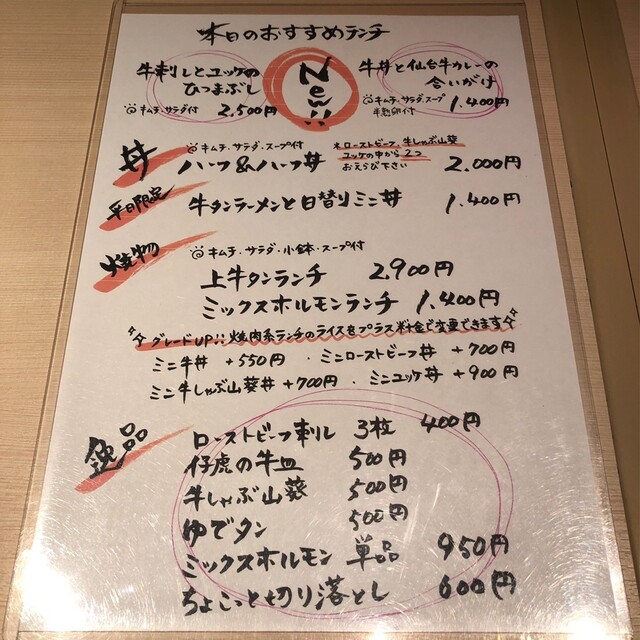 本日のおすすめランチ
牛刺しとユッケの
ひつまぶし
キムチ・サラダ付 2,500円
New!!
牛丼と仙台牛カレーの
合いがけ
キムチ・サラダ・スープ
半熟卵付 1,400円
丼
キムチ・サラダ・スープ付
ハーフ&ハーフ丼
*ローストビーフ、牛しゃぶ山葵
ユッケの中から2つ
おえらび下さい
2,000円
平日限定
牛タンラーメンと日替りミニ丼 1,400円
焼物
キムチ・サラダ・小鉢・スープ付
上牛タンランチ 2,900円
ミックスホルモンランチ 1,400円
グレードUP!! 焼肉系ランチのライスをプラス料金で変更できます
ミニ牛丼 +550円 ・ミニローストビーフ丼 +700円
ミニ牛しゃぶ山葵丼 +700円 ・ミニユッケ丼 +900円
逸品
ローストビーフ刺し 3枚 400円
仔虎の牛皿 500円
牛しゃぶ山葵 500円
ゆでタン 500円
ミックスホルモン 単品 950円
ちょこっと切り落とし 600円